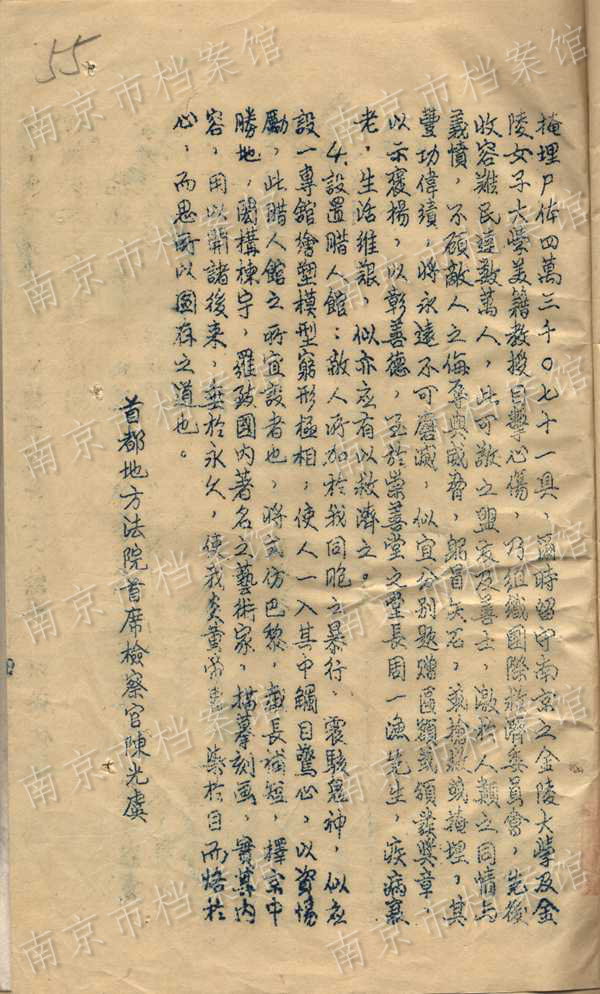 55
掩埋尸体四萬三千〇七十一具，當時留守南京之金陵大學及金
陵女子大學美籍教授目擊心傷，乃組織國際救濟委員會，先後
收容難民達數萬人，此可敬之盟友及善士，激於人類之同情与
義憤，不顧敵人之侮辱與威脅，躬冒矢石，或搶救或掩埋，其
豐功偉績，將永遠不可磨滅，似宜分别題贈匾額或頒發獎章，
以示褒揚，以彰善德，至於崇善堂之堂長周一漁先生，疾病衰
老，生活維艱，似亦应有以救濟之。
4.設置腊人館：敵人所加於我同胞之暴行，震駭鬼神，似应
設一專館繪塑模型窮形極相，使人一入其中觸目驚心，以資惕
勵，此腊人館之所宜設者也，將或仿巴黎，截長補短，擇京中
勝地，闢構棟宇，羅致國内著名之藝術家，描摹刻画，實其内
容，用以昭諸後来，垂於永久，使我炎黄帝 染於目而烙於
心，而思所以圖存之道也。
首都地方法院首席檢察官陳光虞
南京市档案馆